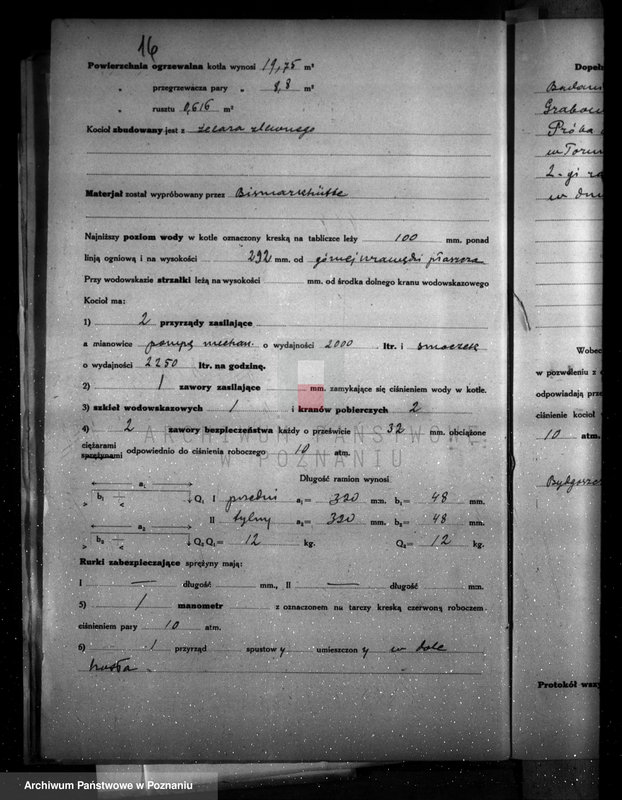 16
Powierzchnia ogrzewalna kotła wynosi 19,75 m²
„ przegrzewacza pary „ 8,8 m²
„ rusztu 0,616 m²
Kocioł zbudowany jest z żelaza zlewnego
Materjał został wypróbowany przez Bismarckhütte
Najniższy poziom wody w kotle oznaczony kreską na tabliczce leży 100 mm. ponad
linją ogniową i na wysokości 292 mm. od górnej krawędzi płaszcza
Przy wodowskazie strzałki leżą na wysokości mm. od środka dolnego kranu wodowskazowego
Kocioł ma:
1) 2 przyrządy zasilające
a mianowicie pompę mechan. o wydajności 2000 ltr. i smoczek
o wydajności 2250 ltr. na godzinę.
2) 1 zawory zasilające mm. zamykające się ciśnieniem wody w kotle.
3) szkieł wodowskazowych 1 i kranów pobierczych 2
4) 2 zawory bezpieczeństwa każdy o prześwicie 32 mm. obciążone
ciężarami
sprężynami odpowiednio do ciśnienia roboczego 10 atm.
ARCHIWUM PAŃSTWOWE
W POZNANIU
Długość ramion wynosi
a₁ b₁ Q₁ I przedni a₁= 320 mm. b₁= 48 mm.
a₂ II tylny a₂= 320 mm. b₂= 48 mm.
b₂ Q₂ Q₁= 12 kg. Q₂= 12 kg.
Rurki zabezpieczające sprężyny mają:
I — długość mm., II — długość mm.
5) 1 manometr z oznaczonem na tarczy kreską czerwoną roboczem
ciśnieniem pary 10 atm.
6) 1 przyrząd spustowy umieszczony w dole
kotła
Dopeł
Badani
Grabow
Próba
w Toru
2-gi
w dni
Wobec
w pozwoleniu z
odpowiadają prze
ciśnienie kocioł
10 atm.
Bydgoszcz
Protokół wszy
Archiwum Państwowe w Poznaniu